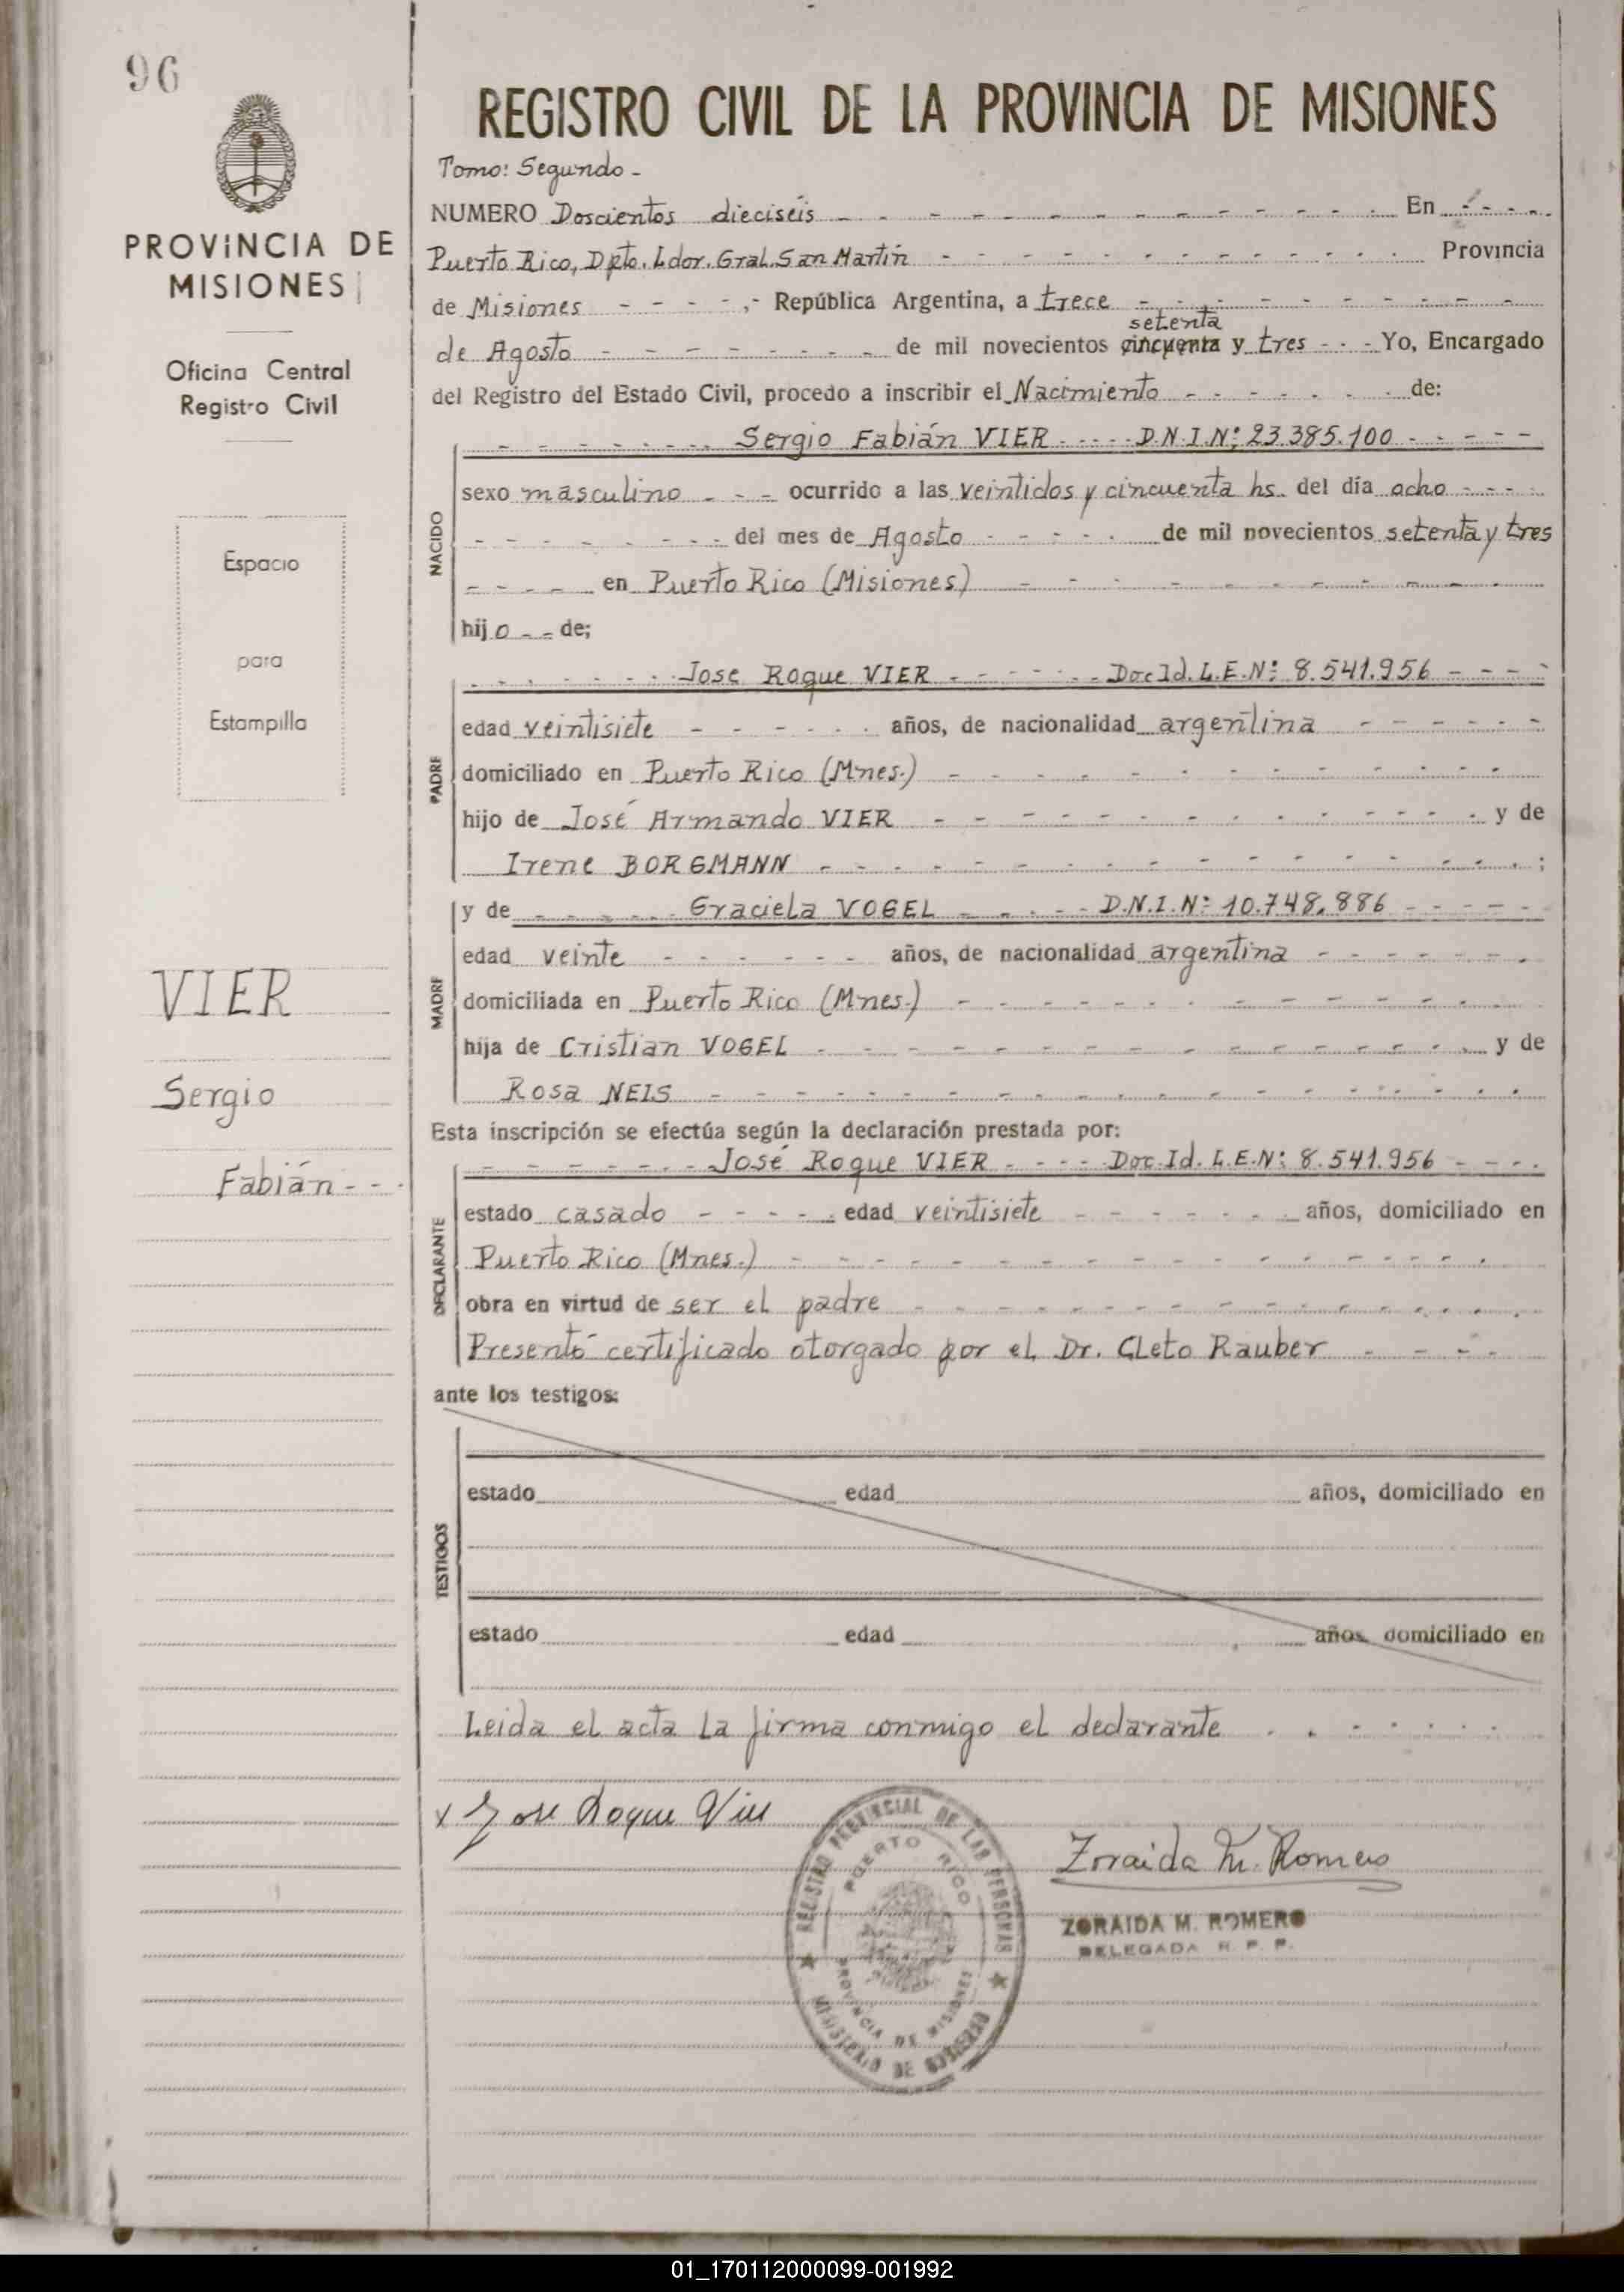 96
PROVINCIA DE
MISIONES
Oficina Central
Registro Civil
Espacio
para
Estampilla
VIER
Sergio
Fabián - - -
REGISTRO CIVIL DE LA PROVINCIA DE MISIONES
Tomo: Segundo -
NUMERO Doscientos dieciséis - - - En - - -
Puerto Rico, Dpto. Ldor. Gral. San Martín - - - Provincia
de Misiones - - - - República Argentina, a trece - - -
setenta
de Agosto - - - de mil novecientos cincuenta y tres - - - Yo, Encargado
del Registro del Estado Civil, procedo a inscribir el Nacimiento - - - de:
- - - Sergio Fabián VIER - - - D.N.I.Nº: 23.385.100 - - -
NACIDO
sexo masculino - - - ocurrido a las veintidos y cincuenta hs. del día ocho - - -
- - - del mes de Agosto - - - de mil novecientos setenta y tres
- - - en Puerto Rico (Misiones) - - -
hijo - - de;
PADRE
- - - Jose Roque VIER - - - Doc Id. L.E.Nº: 8.541.956 - - -
edad veintisiete - - - años, de nacionalidad argentina - - -
domiciliado en Puerto Rico (Mnes.) - - -
hijo de José Armando VIER - - - y de
Irene BORGMANN - - - ;
MADRE
y de - - - Graciela VOGEL - - - D.N.I.Nº: 10.748.886 - - -
edad veinte - - - años, de nacionalidad argentina - - -
domiciliada en Puerto Rico (Mnes.) - - -
hija de Cristian VOGEL - - - y de
Rosa NEIS - - -
Esta inscripción se efectúa según la declaración prestada por:
DECLARANTE
- - - José Roque VIER - - - Doc. Id. L.E.Nº: 8.541.956 - - -
estado casado - - - edad veintisiete - - - años, domiciliado en
Puerto Rico (Mnes.) - - -
obra en virtud de ser el padre - - -
Presentó certificado otorgado por el Dr. Cleto Rauber - - -
ante los testigos:
TESTIGOS
estado edad años, domiciliado en
estado edad años, domiciliado en
Leida el acta la firma conmigo el declarante - - -
x Jose Roque Vier
REGISTRO PROVINCIAL DE LAS PERSONAS
PUERTO RICO
PROVINCIA DE MISIONES
MINISTERIO DE GOBIERNO
Zoraida M. Romero
ZORAIDA M. ROMERO
DELEGADA R. P. P.
01_170112000099-001992